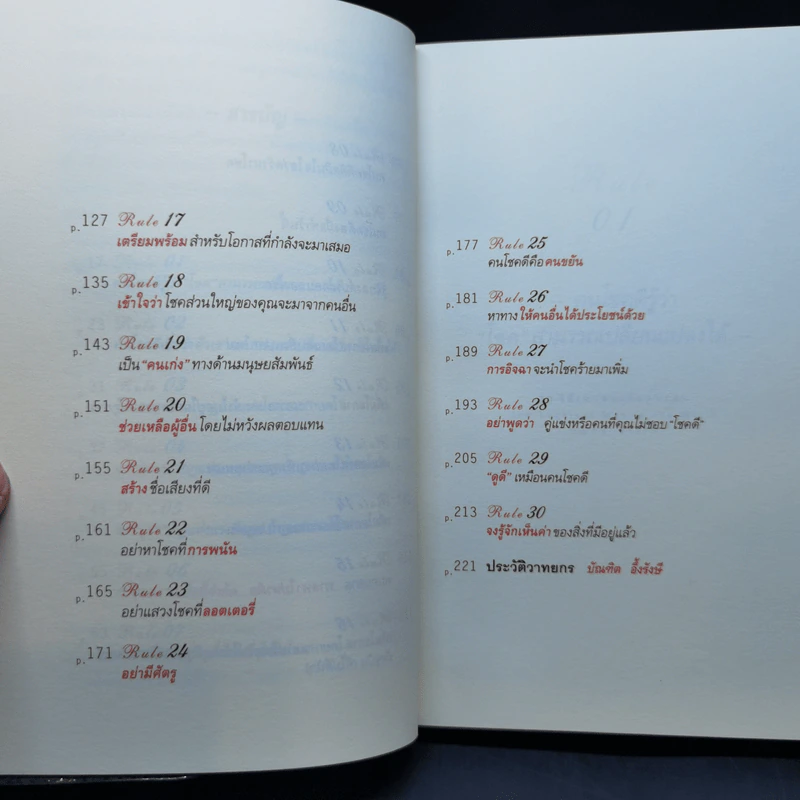 p.127 Rule 17
เตรียมพร้อม สำหรับโอกาสที่กำลังจะมาเสมอ
p.135 Rule 18
เข้าใจว่า โชคส่วนใหญ่ของคุณจะมาจากคนอื่น
p.143 Rule 19
เป็น "คนเก่ง" ทางด้านมนุษยสัมพันธ์
p.151 Rule 20
ช่วยเหลือผู้อื่น โดยไม่หวังผลตอบแทน
p.155 Rule 21
สร้าง ชื่อเสียงที่ดี
p.161 Rule 22
อย่าหาโชคที่ การพนัน
p.165 Rule 23
อย่าแสวงโชคที่ลอตเตอรี่
p.171 Rule 24
อย่ามีศัตรู
p.177 Rule 25
คนโชคดีคือ คนขยัน
p.181 Rule 26
หาทาง ให้คนอื่นได้ประโยชน์ด้วย
p.189 Rule 27
การอิจฉา จะนำโชคร้ายมาเพิ่ม
p.193 Rule 28
อย่าพูดว่า คู่แข่งหรือคนที่คุณไม่ชอบ "โชคดี"
p.205 Rule 29
"ดูดี" เหมือนคนโชคดี
p.213 Rule 30
จงรู้จักเห็นค่า ของสิ่งที่มีอยู่แล้ว
p.221 ประวัติวาทยกร บัณฑิต อึ้งรังษี